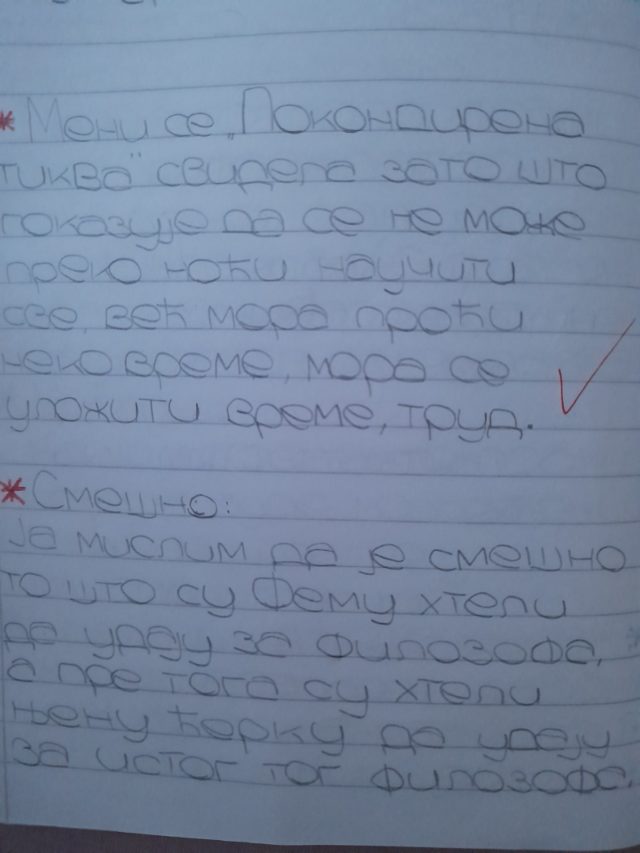 * Мени се „Покондирена
тиква" свидела зато што
показује да се не може
преко ноћи научити
све, већ мора проћи
неко време, мора се
уложити време, труд.
* Смешно:
Ја мислим да је смешно
то што су Фему хтели
да удају за филозофа,
а пре тога су хтели
њену ћерку да удају
за истог тог филозофа.